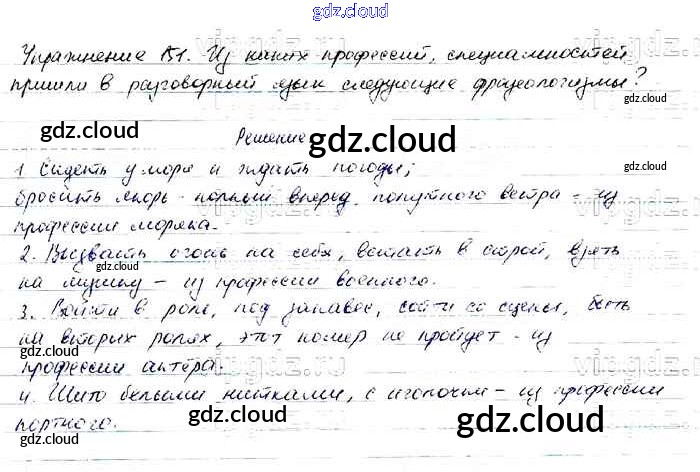 gdz.cloud
Упражнение 151. Из каких профессий, специальностей
пришли в разговорный язык следующие фразеологизмы?
gdz.cloud
gdz.cloud
Решение
gdz.cloud
gdz.cloud
1. Сидеть у моря и ждать погоды;
бросить якорь - полный вперед, попутного ветра - из
профессии моряка.
2. Вызвать огонь на себя, встать в строй, взять
на мушку - из профессии военного.
gdz.cloud
gdz.cloud
3. Войти в роль, под занавес, сойти со сцены, быть
на вторых ролях, этот номер не пройдет - из
gdz.cloud
gdz.cloud
профессии актёра.
4. Шито белыми нитками, с иголочки - из профессии
портного.
gdz.cloud
gdz.cloud
gdz.cloud